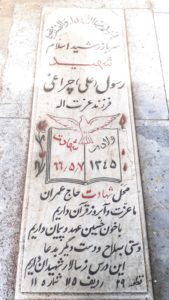 سرباز رشید اسلام
شهید
رسول (علی) چراغی
فرزند عزت اله
ولادت
۱۳۴۵
شهادت
۶۶/۵/۷
محل شهادت حاج عمران
ما عزت و آبرو ز قرآن داریم
با خون حسین عهد و پیمان داریم
دستی بسلاح و دست دیگر به دعا
این درس ز سالار شهیدان داریم
قطعه ۲۹ ردیف ۷۵ شماره ۱۱